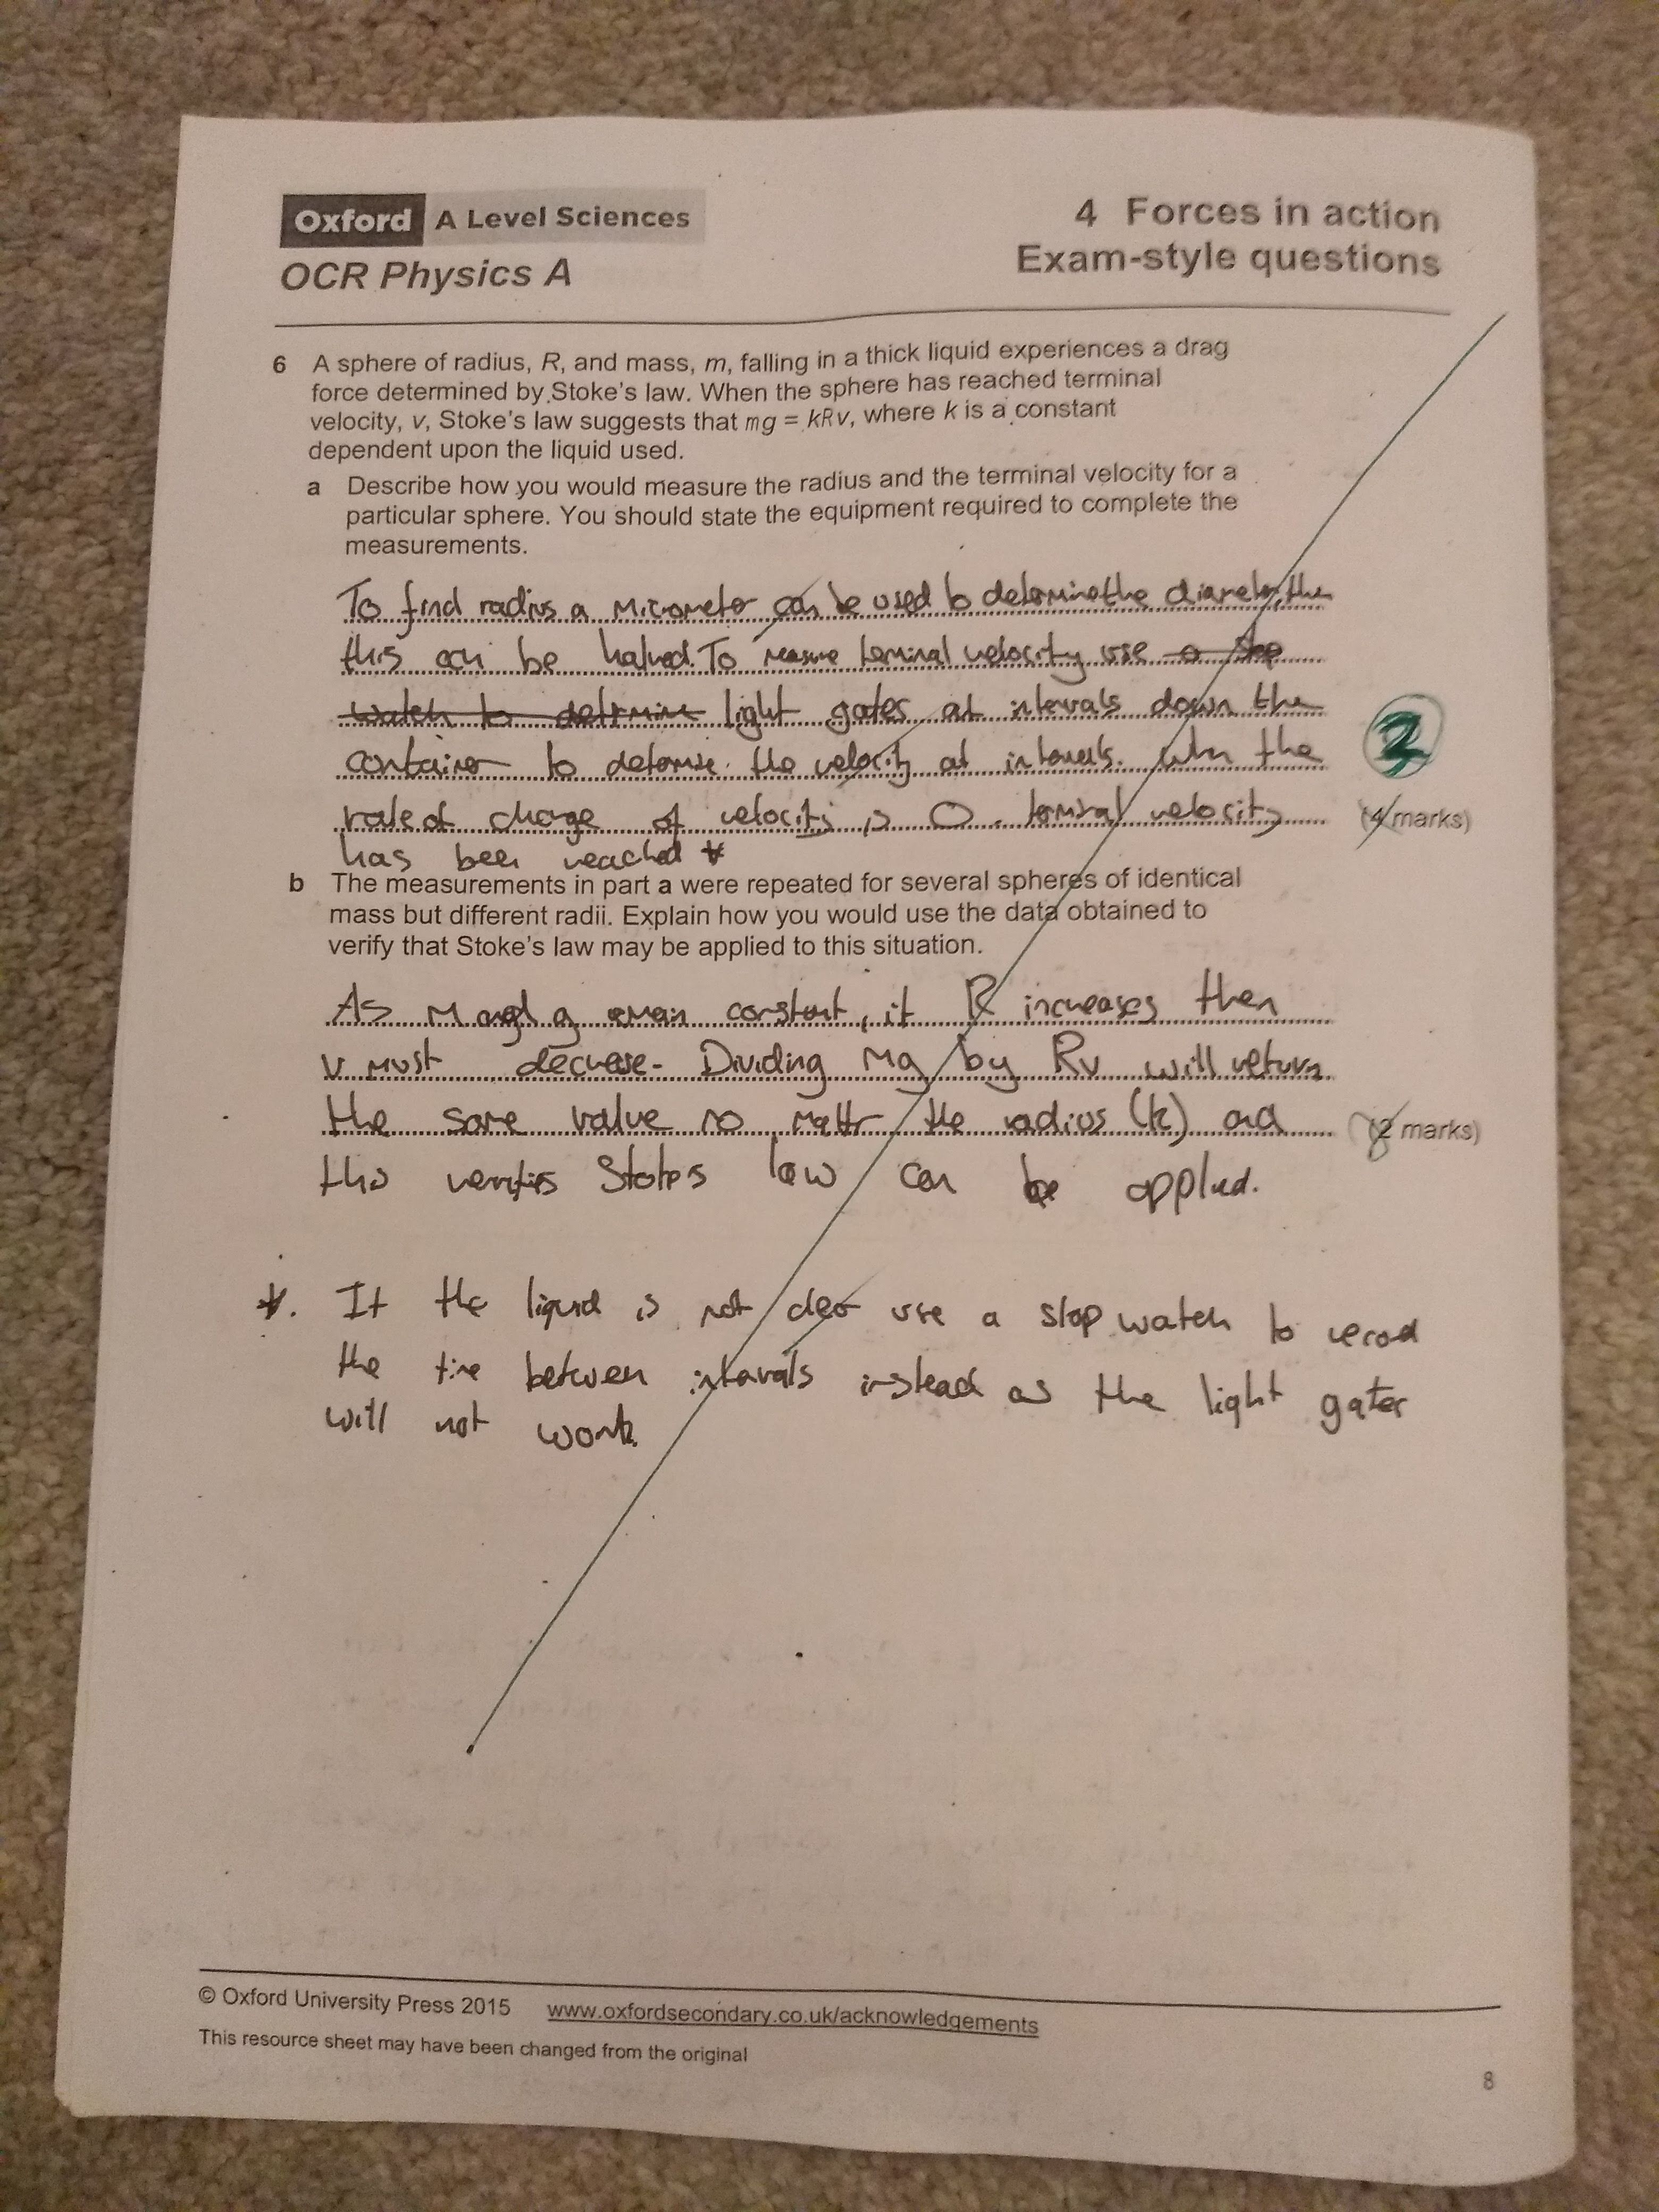 Oxford A Level Sciences
OCR Physics A
4 Forces in action
Exam-style questions
6 A sphere of radius, R, and mass, m, falling in a thick liquid experiences a drag
force determined by Stoke's law. When the sphere has reached terminal
velocity, v, Stoke's law suggests that mg = kRv, where k is a constant
dependent upon the liquid used.
a Describe how you would measure the radius and the terminal velocity for a
particular sphere. You should state the equipment required to complete the
measurements.
To find radius a micrometer can be used to determine the diameter, then
this can be halved. To measure terminal velocity use a stop
watch to determine light gates at intervals down the
container to determine the velocity at intervals. When the
rate of change of velocity is 0, terminal velocity
(4 marks)
has been reached *
b The measurements in part a were repeated for several spheres of identical
mass but different radii. Explain how you would use the data obtained to
verify that Stoke's law may be applied to this situation.
As m and g remain constant, if R increases then
v must decrease. Dividing mg by Rv will return
the same value no matter the radius (k) and
(2 marks)
this verifies Stokes law can be applied.
*. If the liquid is not clear use a stop watch to record
the time between intervals instead as the light gates
will not work.
© Oxford University Press 2015 www.oxfordsecondary.co.uk/acknowledgements
This resource sheet may have been changed from the original
8